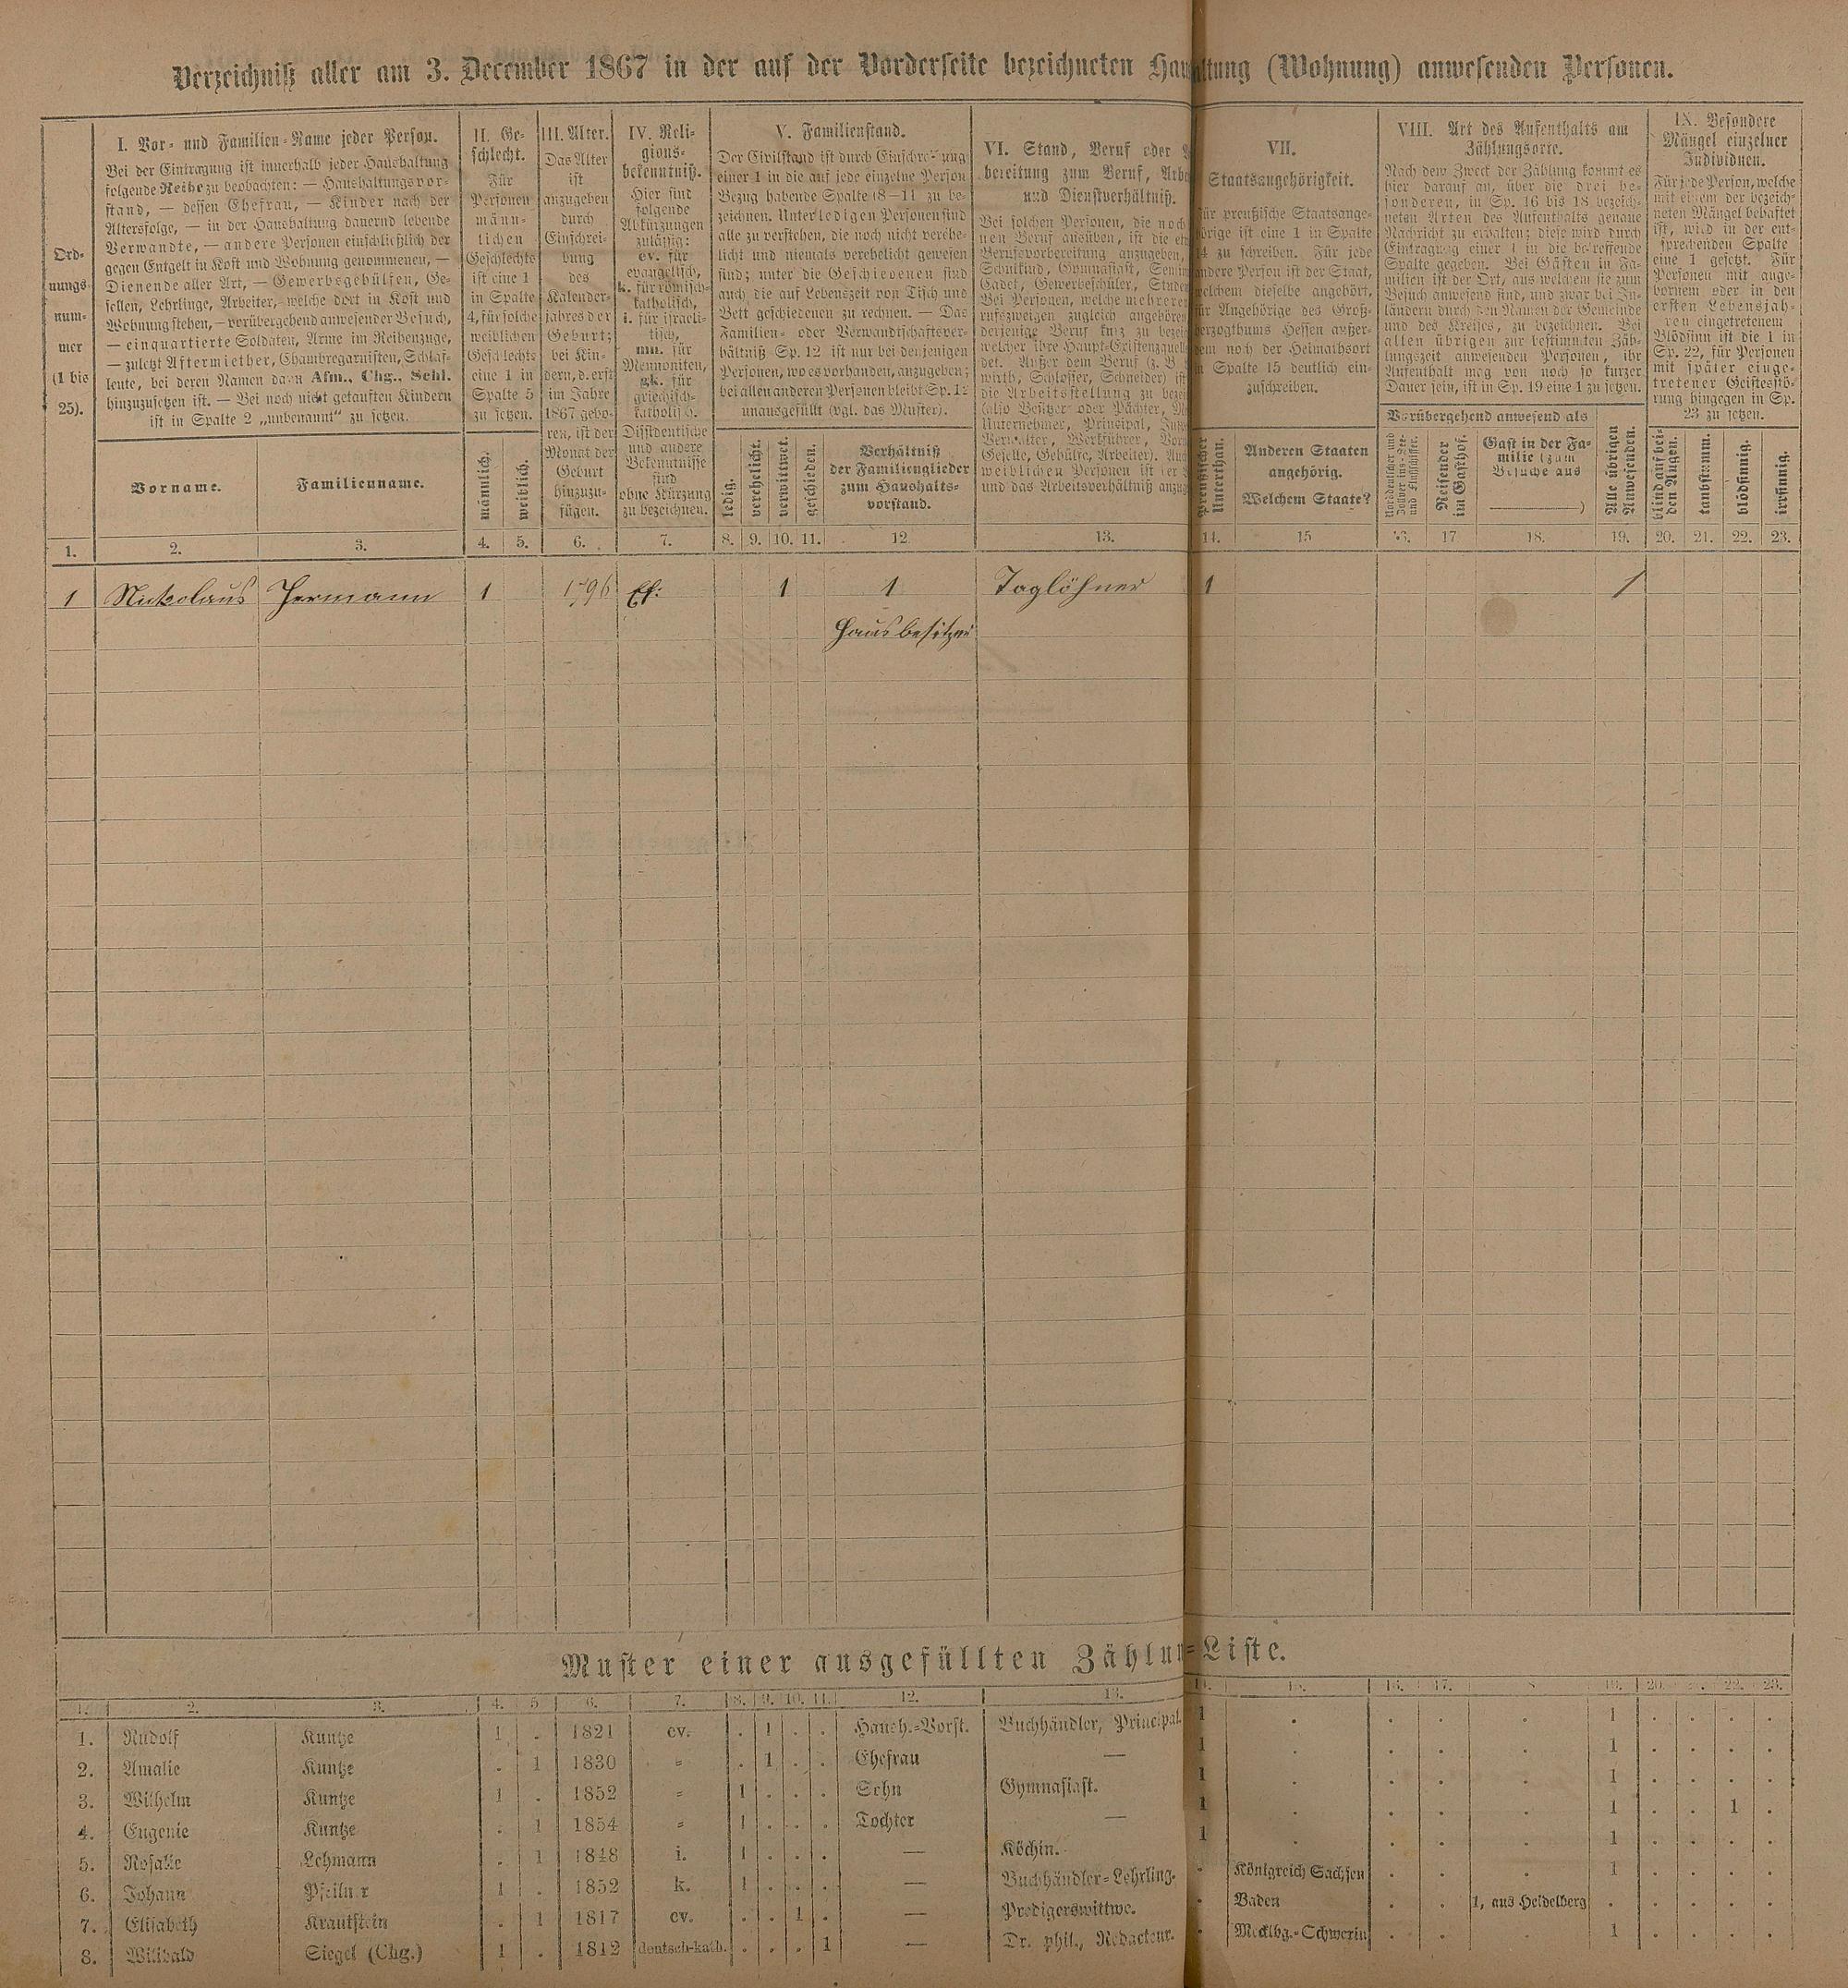 Verzeichniß aller am 3. December 1867 in der auf der Vorderseite bezeichneten Haushaltung (Wohnung) anwesenden Personen.
Ord-
nungs-
num-
mer
(1 bis
25).
I. Vor- und Familien-Name jeder Person.
Bei der Eintragung ist innerhalb jeder Haushaltung
folgende Reihe zu beobachten: — Haushaltungsvor-
stand, — dessen Ehefrau, — Kinder nach der
Altersfolge, — in der Haushaltung dauernd lebende
Verwandte, — andere Personen einschließlich der
gegen Entgelt in Kost und Wohnung genommenen, —
Dienende aller Art, — Gewerbsgehülfen, Ge-
sellen, Lehrlinge, Arbeiter, welche dort in Kost und
Wohnung stehen, — vorübergehend anwesender Besuch,
— einquartierte Soldaten, Arme im Reihenzuge,
— zuletzt Aftermiether, Chambregarnisten, Schlaf-
leute, bei deren Namen dann Afm., Chg., Schl.
hinzuzusetzen ist. — Bei noch nicht getauften Kindern
ist in Spalte 2 „unbenannt" zu setzen.
Vorname.
Familienname.
II. Ge-
schlecht.
Für
Personen
männ-
lichen
Geschlechts
ist eine 1
in Spalte
4, für solche
weiblichen
Geschlechts
eine 1 in
Spalte 5
zu setzen.
männlich.
weiblich.
III. Alter.
Das Alter
ist
anzugeben
durch
Einschrei-
bung
des
Kalender-
jahres der
Geburt;
bei Kin-
dern, d. erst
im Jahre
1867 gebo-
ren, ist der
Monat der
Geburt
hinzuzu-
fügen.
IV. Reli-
gions-
bekenntniß.
Hier sind
folgende
Abkürzungen
zulässig:
ev. für
evangelisch,
k. für römisch-
katholisch,
i. für israeli-
tisch,
mn. für
Mennoniten,
gk. für
griechisch-
katholisch.
Dissidentische
und andere
Bekenntnisse
sind
ohne Kürzung
zu bezeichnen.
V. Familienstand.
Der Civilstand ist durch Einschreibung
einer 1 in die auf jede einzelne Person
Bezug habende Spalte (8—11) zu be-
zeichnen. Unter Ledigen Personen sind
alle zu verstehen, die noch nicht verehe-
licht und niemals verehelicht gewesen
sind; unter die Geschiedenen sind
auch die auf Lebenszeit von Tisch und
Bett geschiedenen zu rechnen. — Das
Familien- oder Verwandtschaftsver-
hältniß Sp. 12 ist nur bei denjenigen
Personen, wo es vorhanden, anzugeben;
bei allen anderen Personen bleibt Sp. 12
unausgefüllt (vgl. das Muster).
ledig.
verehelicht.
verwittwet.
geschieden.
Verhältniß
der Familienglieder
zum Haushalts-
vorstand.
VI. Stand, Beruf oder
bereitung zum Beruf,
und Dienstverhältniß.
Bei solchen Personen, die noch
nen Beruf ausüben, ist die
Berufsvorbereitung anzugeben,
Schulkind, Gymnasiast,
Cadet, Gewerbeschüler,
Bei Personen, welche mehreren
rufszweigen zugleich angehören
derjenige Beruf kurz zu
welcher ihre Haupt-Existenzquelle
det. Außer dem Beruf (z. B.
wirth, Schlosser, Schneider) ist
die Arbeitsstellung zu
(also Besitzer oder Pächter,
Unternehmer, Principal,
Verwalter, Werkführer,
Geselle, Gehülfe, Arbeiter).
weiblichen Personen ist der
und das Arbeitsverhältniß
VII.
Staatsangehörigkeit.
Für preußische Staatsange-
hörige ist eine 1 in Spalte
14 zu schreiben. Für jede
andere Person ist der Staat,
welchem dieselbe angehört,
für Angehörige des Groß-
herzogthums Hessen außer-
dem noch der Heimathsort
in Spalte 15 deutlich ein-
zuschreiben.
Preußischer
Unterthan.
Anderen Staaten
angehörig.
Welchem Staate?
VIII. Art des Aufenthalts am
Zählungsorte.
Nach dem Zweck der Zählung kommt es
hier darauf an, über die drei be-
sonderen, in Sp. 16 bis 18 bezeich-
neten Arten des Aufenthalts genaue
Nachricht zu erhalten; diese wird durch
Eintragung einer 1 in die betreffende
Spalte gegeben. Bei Gästen in Fa-
milien ist der Ort, aus welchem sie zum
Besuch anwesend sind, und zwar bei In-
ländern durch den Namen der Gemeinde
und des Kreises, zu bezeichnen. Bei
allen übrigen zur bestimmten Zäh-
lungszeit anwesenden Personen, ihr
Aufenthalt mag von noch so kurzer
Dauer sein, ist in Sp. 19 eine 1 zu setzen.
Vorübergehend anwesend als
Norddeutscher und
Zollvereins-See-
und Flußschiffer.
Reisender
im Gasthof.
Gast in der Fa-
milie (zum
Besuche aus
)
Alle übrigen
Anwesenden.
IX. Besondere
Mängel einzelner
Individuen.
Für jede Person, welche
mit einem der bezeich-
neten Mängel behaftet
ist, wird in der ent-
sprechenden Spalte
eine 1 gesetzt. Für
Personen mit ange-
bornem oder in den
ersten Lebensjah-
ren eingetretenem
Blödsinn ist die 1 in
Sp. 22, für Personen
mit später einge-
tretener Geistesstö-
rung hingegen in Sp.
23 zu setzen.
blind auf bei-
den Augen.
taubstumm.
blödsinnig.
irrsinnig.
1. 2. 3. 4. 5. 6. 7. 8. 9. 10. 11. 12. 13. 14. 15 16. 17 18. 19. 20. 21. 22. 23.
1 Nickolaus Hermann 1 1796 Ef: 1 1 Taglöhner 1 1
Hausbesitzer
Muster einer ausgefüllten Zählungs-Liste.
1. 2. 3. 4. 5 6. 7. 8. 9. 10. 11. 12. 13. 14. 15. 16. 17. 8. 19. 20. 22. 23.
1. Rudolf Kuntze 1 . 1821 ev. . 1 . . Haush.-Vorst. Buchhändler, Principal. 1 . . . . 1 . . . .
2. Amalie Kuntze . 1 1830 = . 1 . . Ehefrau — 1 . . . . 1 . . . .
3. Wilhelm Kuntze 1 . 1852 = 1 . . . Sohn Gymnasiast. 1 . . . . 1 . . . .
4. Eugenie Kuntze . 1 1854 = 1 . . . Tochter — 1 . . . . 1 . . 1 .
5. Rosalie Lehmann . 1 1848 i. 1 . . . — Köchin. 1 . . . . 1 . . . .
6. Johann Pfeilner 1 . 1852 k. 1 . . . — Buchhändler-Lehrling. . Königreich Sachsen . . . 1 . . . .
7. Elisabeth Krautstein . 1 1817 ev. . . 1 . — Predigerswittwe. . Baden . . 1, aus Heidelberg . . . . .
8. Willibald Siegel (Chg.) 1 . 1812 deutsch-kath. . . . 1 — Dr. phil., Redacteur. . Mecklbg.-Schwerin . . . 1 . . . .